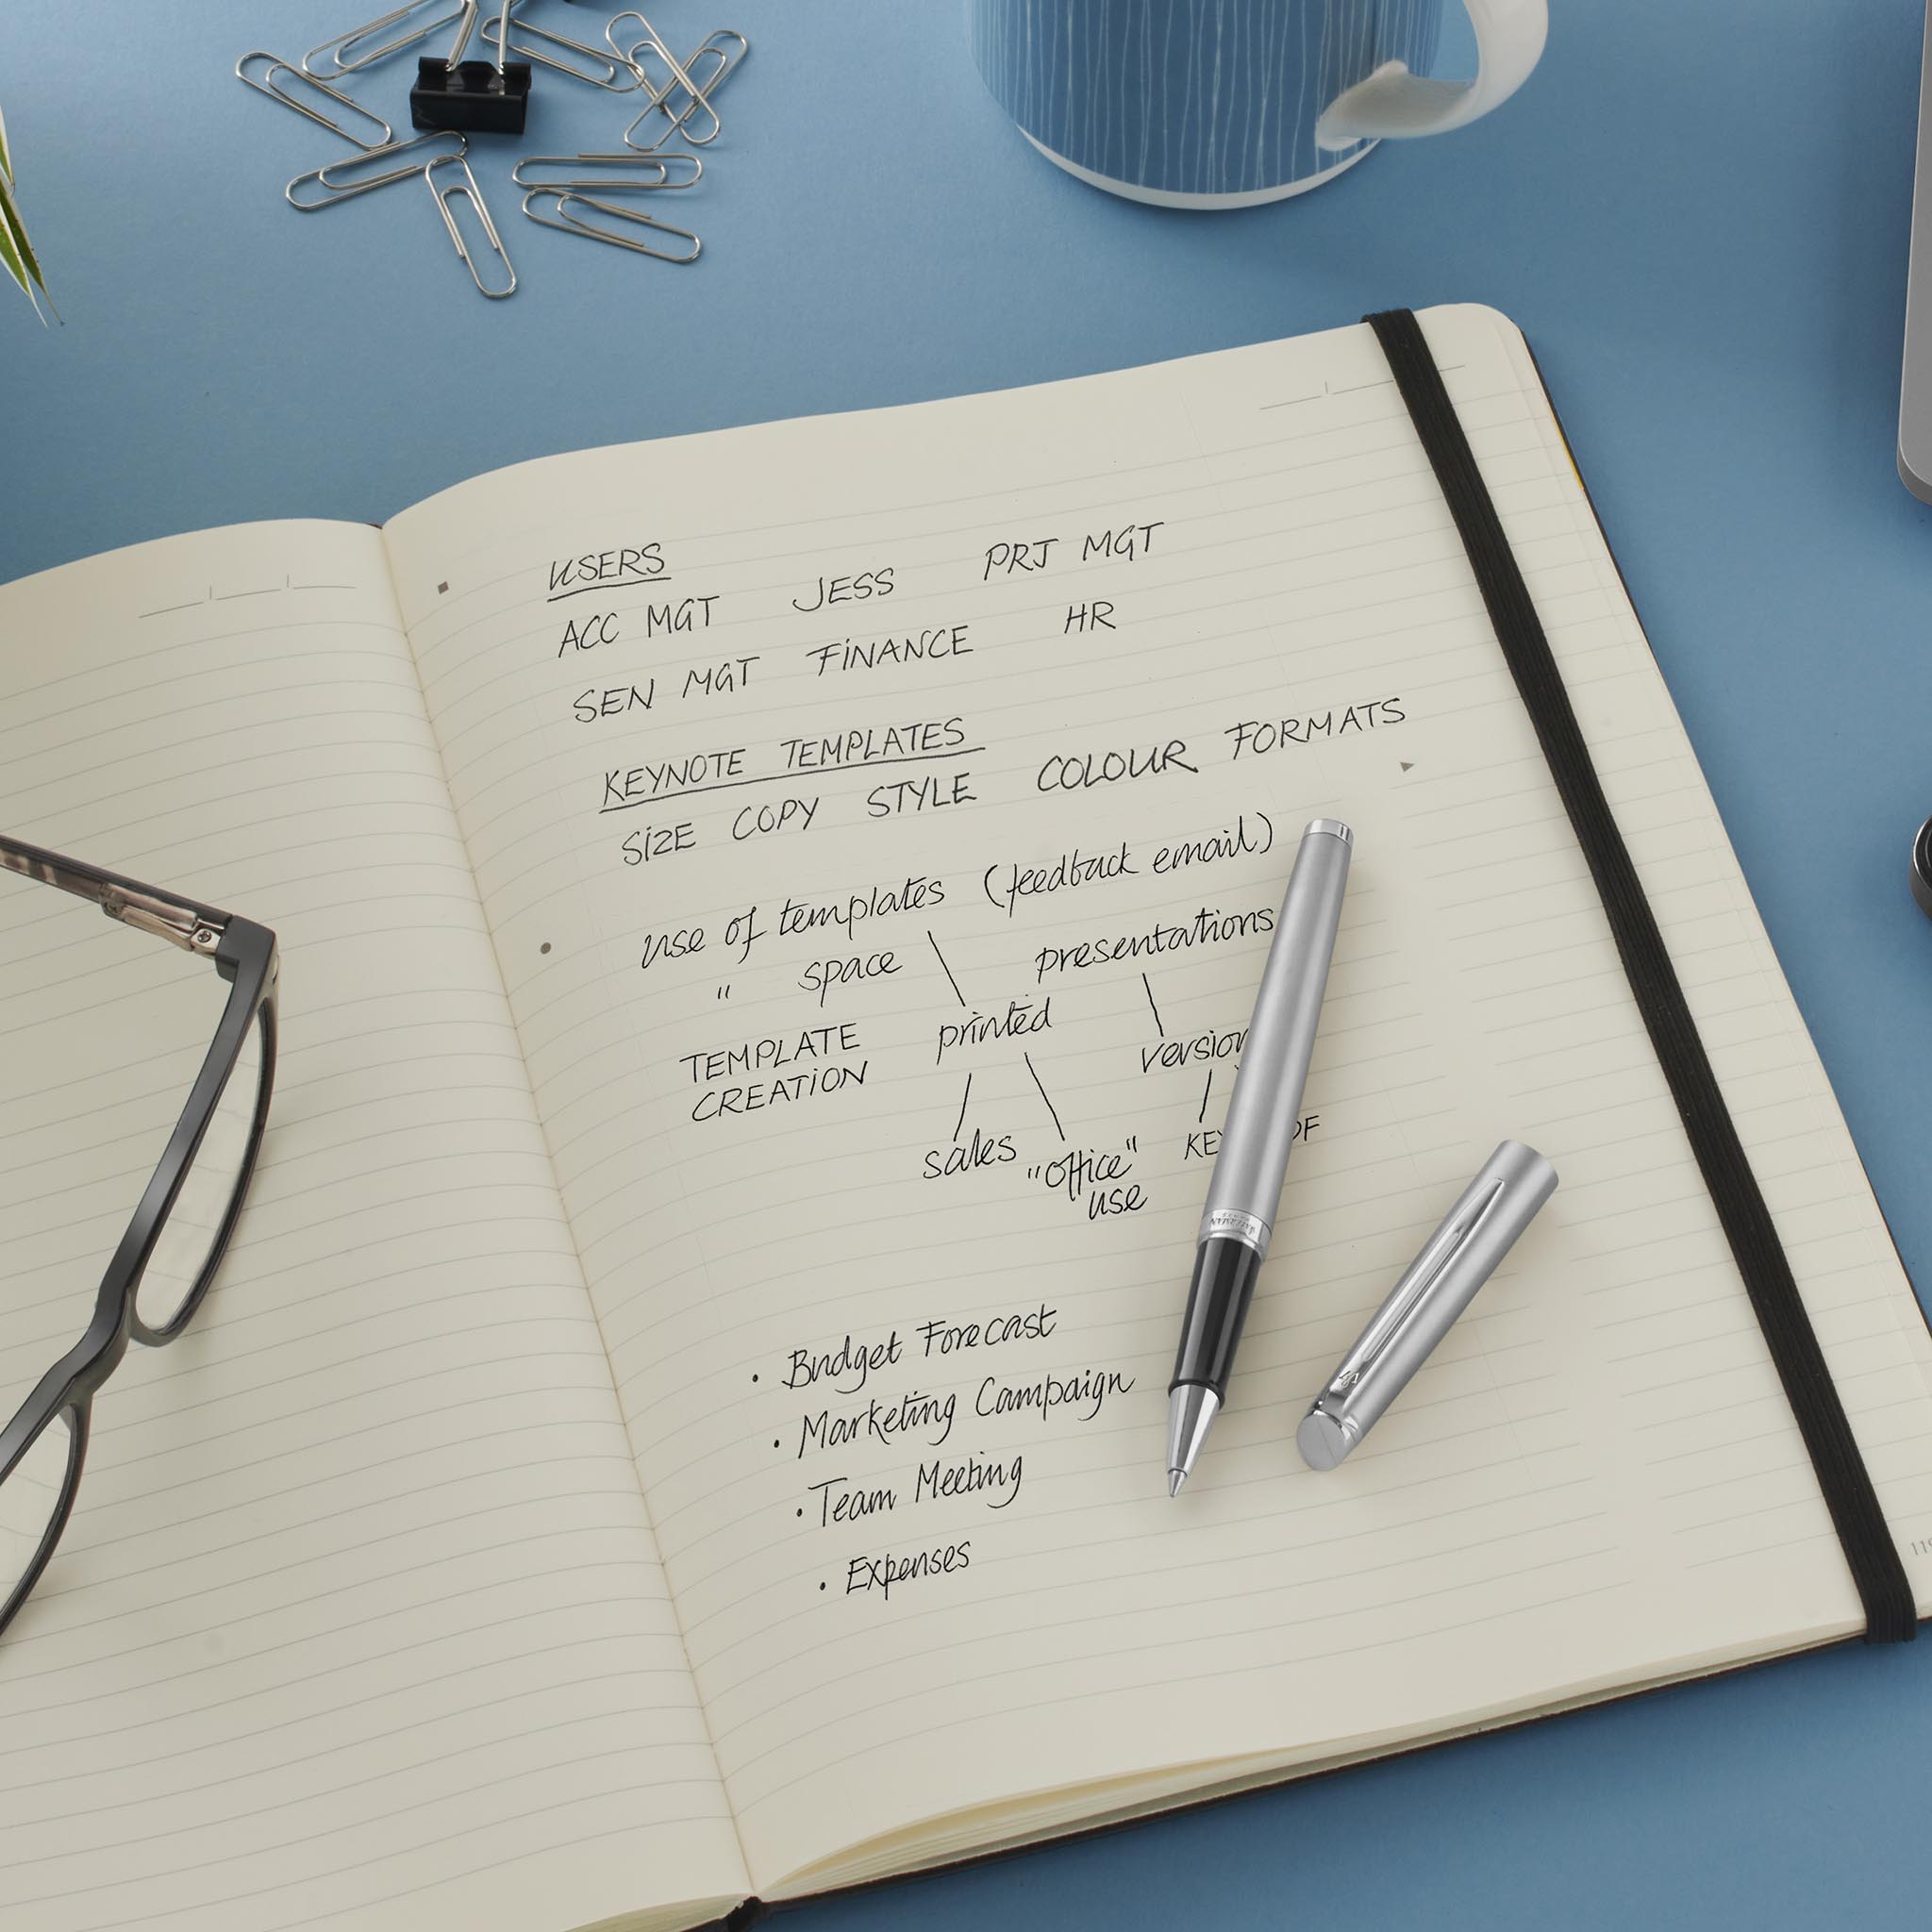 USERS
ACC MGT JESS PRJ MGT
SEN MGT FINANCE HR
KEYNOTE TEMPLATES
SIZE COPY STYLE COLOUR FORMATS
use of templates (feedback email)
" space presentations
TEMPLATE printed version
CREATION
sales "office" KE DF
use
• Budget Forecast
• Marketing Campaign
• Team Meeting
• Expenses
WATERMAN